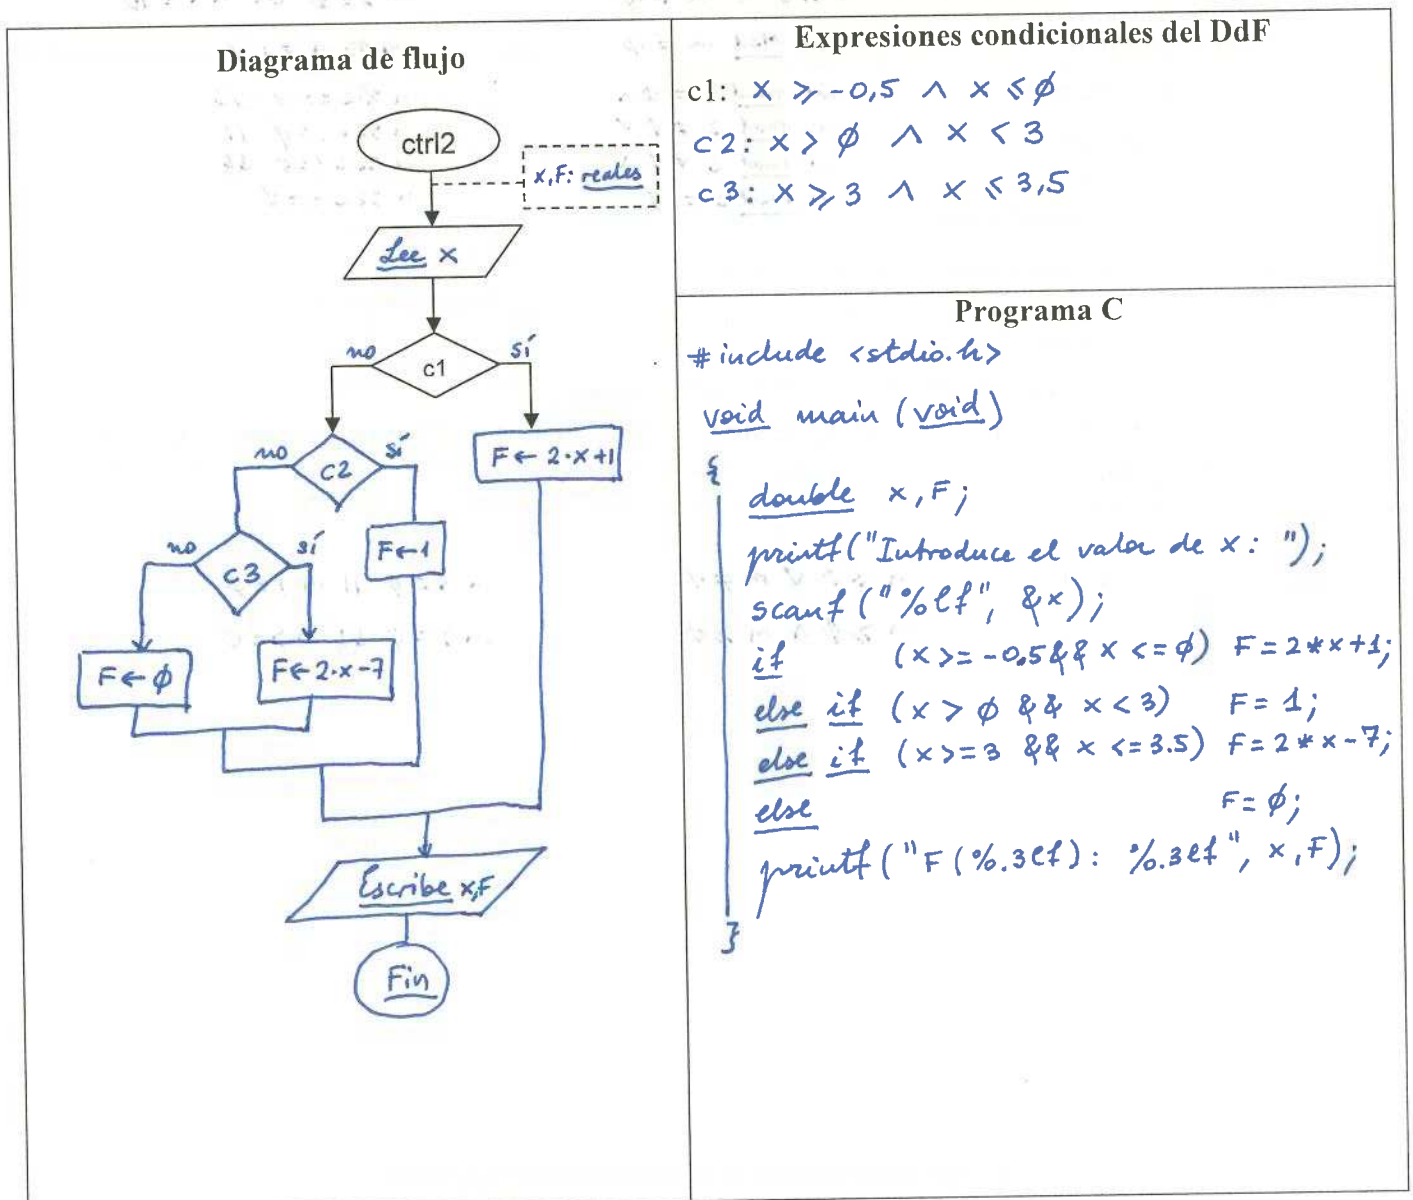 Diagrama de flujo
ctrl2
x,F: reales
Lee x
no
c1
sí
F ← 2·x+1
no
c2
sí
F←1
no
c3
sí
F ← ϕ
F← 2·x-7
Escribe x,F
Fin
Expresiones condicionales del DdF
c1: x ⩾ -0,5 ∧ x ⩽ ϕ
c2: x > ϕ ∧ x < 3
c3: x ⩾ 3 ∧ x ⩽ 3,5
Programa C
#include <stdio.h>
void main (void)
{
double x,F;
printf("Introduce el valor de x: ");
scanf("%lf", &x);
if (x>=-0.5 && x <= ϕ) F=2*x+1;
else if (x > ϕ && x<3) F= 1;
else if (x>=3 && x <= 3.5) F=2*x-7;
else F= ϕ;
printf("F(%.3lf): %.3lf", x,F);
}